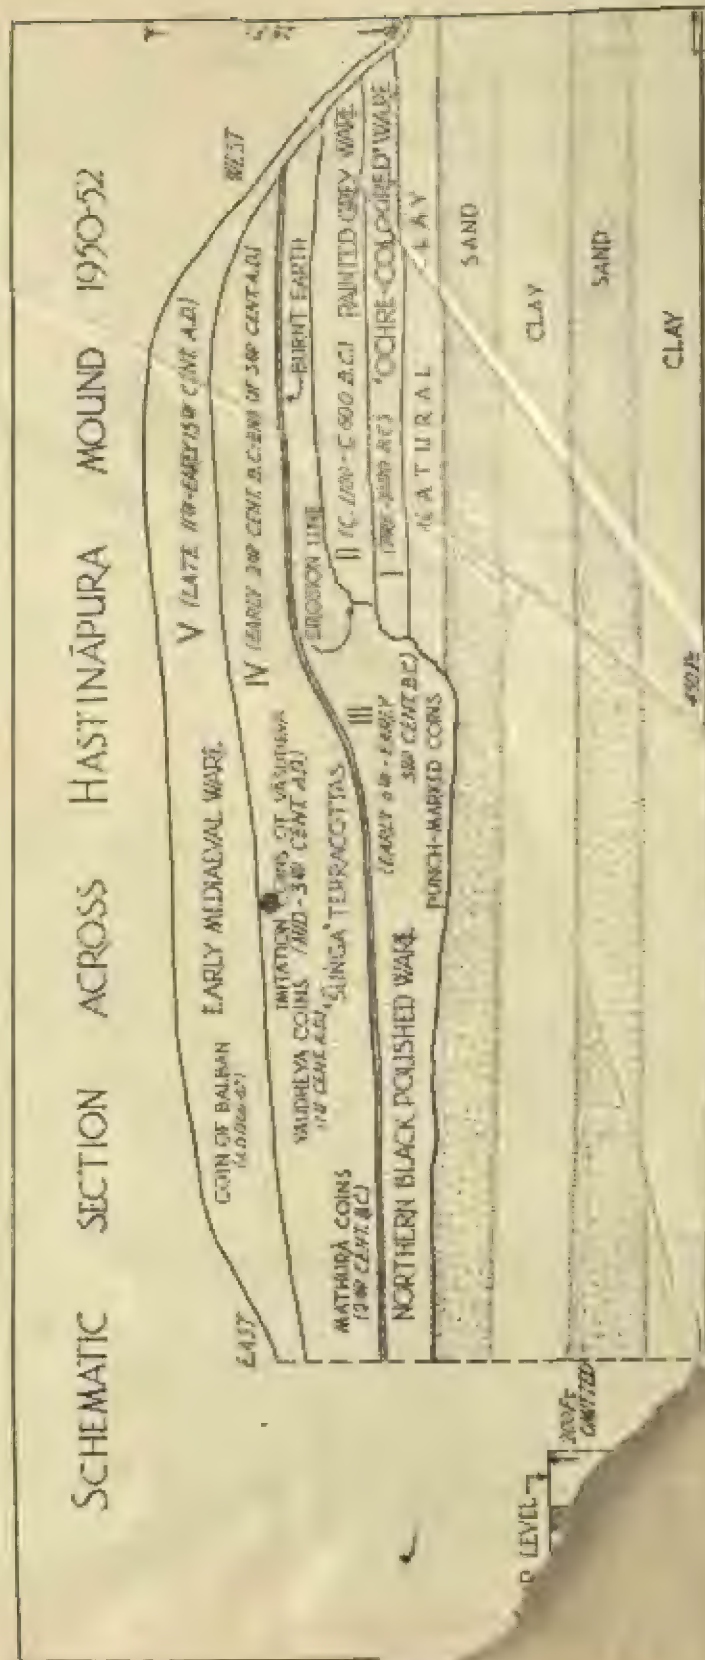 SCHEMATIC SECTION ACROSS HASTINĀPURA MOUND 1950-52
EAST
WEST
V (LATE 11TH-EARLY 15TH CENT. A.D.)
COIN OF BALBAN
EARLY MEDIAEVAL WARE
IV (EARLY 2ND CENT. B.C.-END OF 3RD CENT. A.D.)
IMITATION COINS OF VASUDEVA
(MID-3RD CENT. A.D.)
YAUDHEYA COINS
'SUNGA' TERRACOTTAS
MATHURĀ COINS
(2ND CENT. B.C.)
BURNT EARTH
EROSION LINE
III
(EARLY 6TH-EARLY
3RD CENT. B.C.)
NORTHERN BLACK POLISHED WARE
PUNCH-MARKED COINS
II (C. 1100-C. 800 B.C.) PAINTED GREY WARE
I 'OCHRE-COLOURED' WARE
NATURAL CLAY
SAND
CLAY
SAND
CLAY
LEVEL
200 Ft
OMITTED
450 Ft